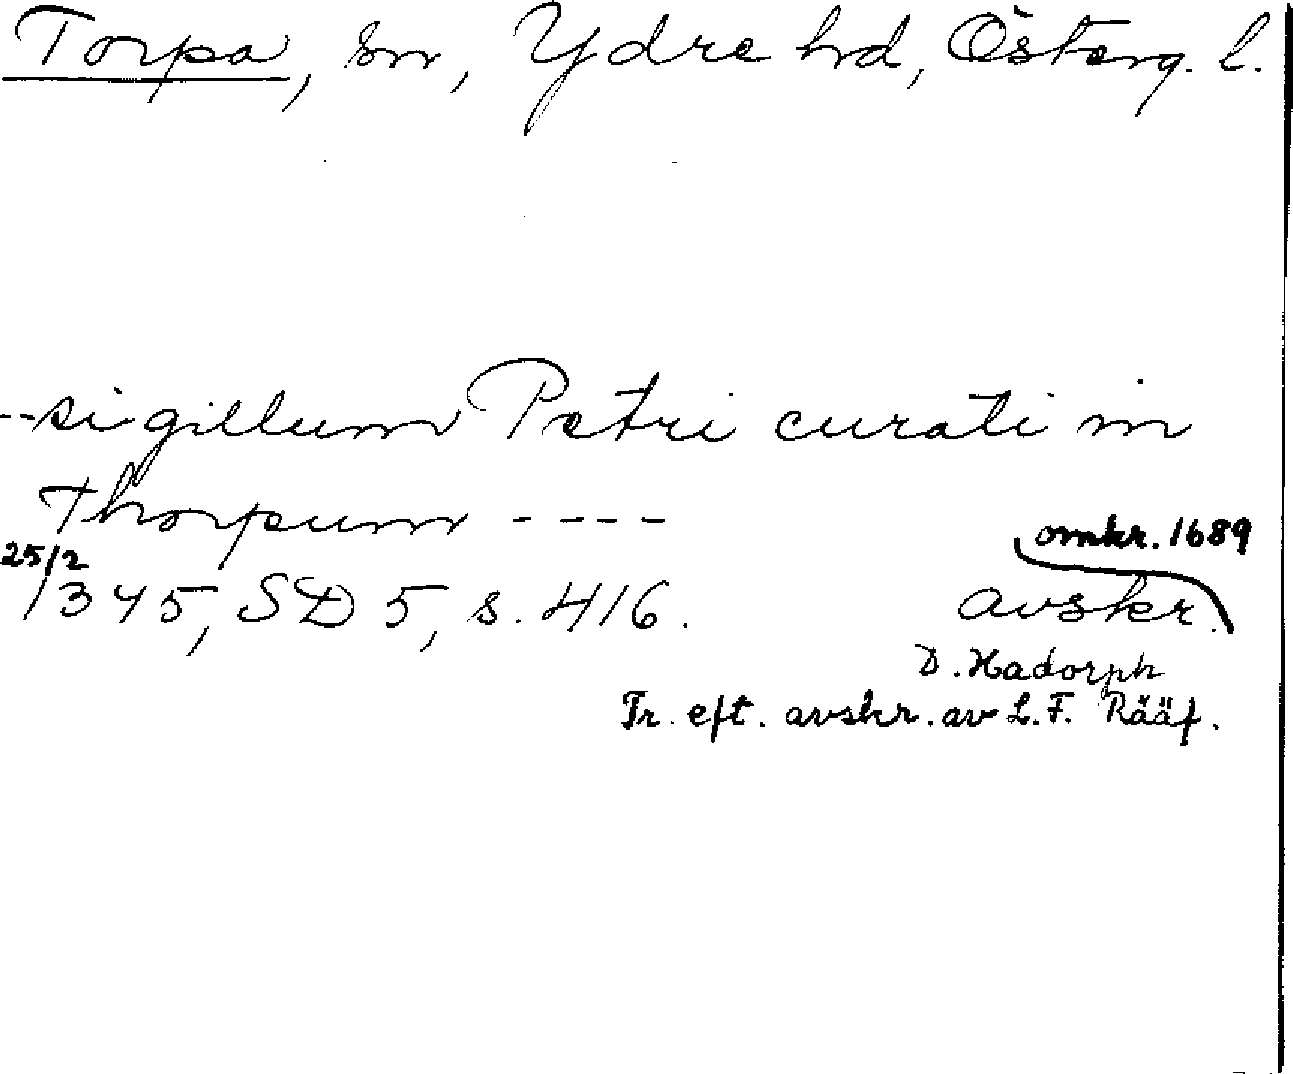 Torpa, sn, Ydre hd, Österg. l.
--sigillum Petri curati in
Thorpum ----
25/2
1345, SD 5, s. 416.
omkr. 1689
avskr.
D. Hadorph
Tr. eft. avskr. av L. F. Rääf.